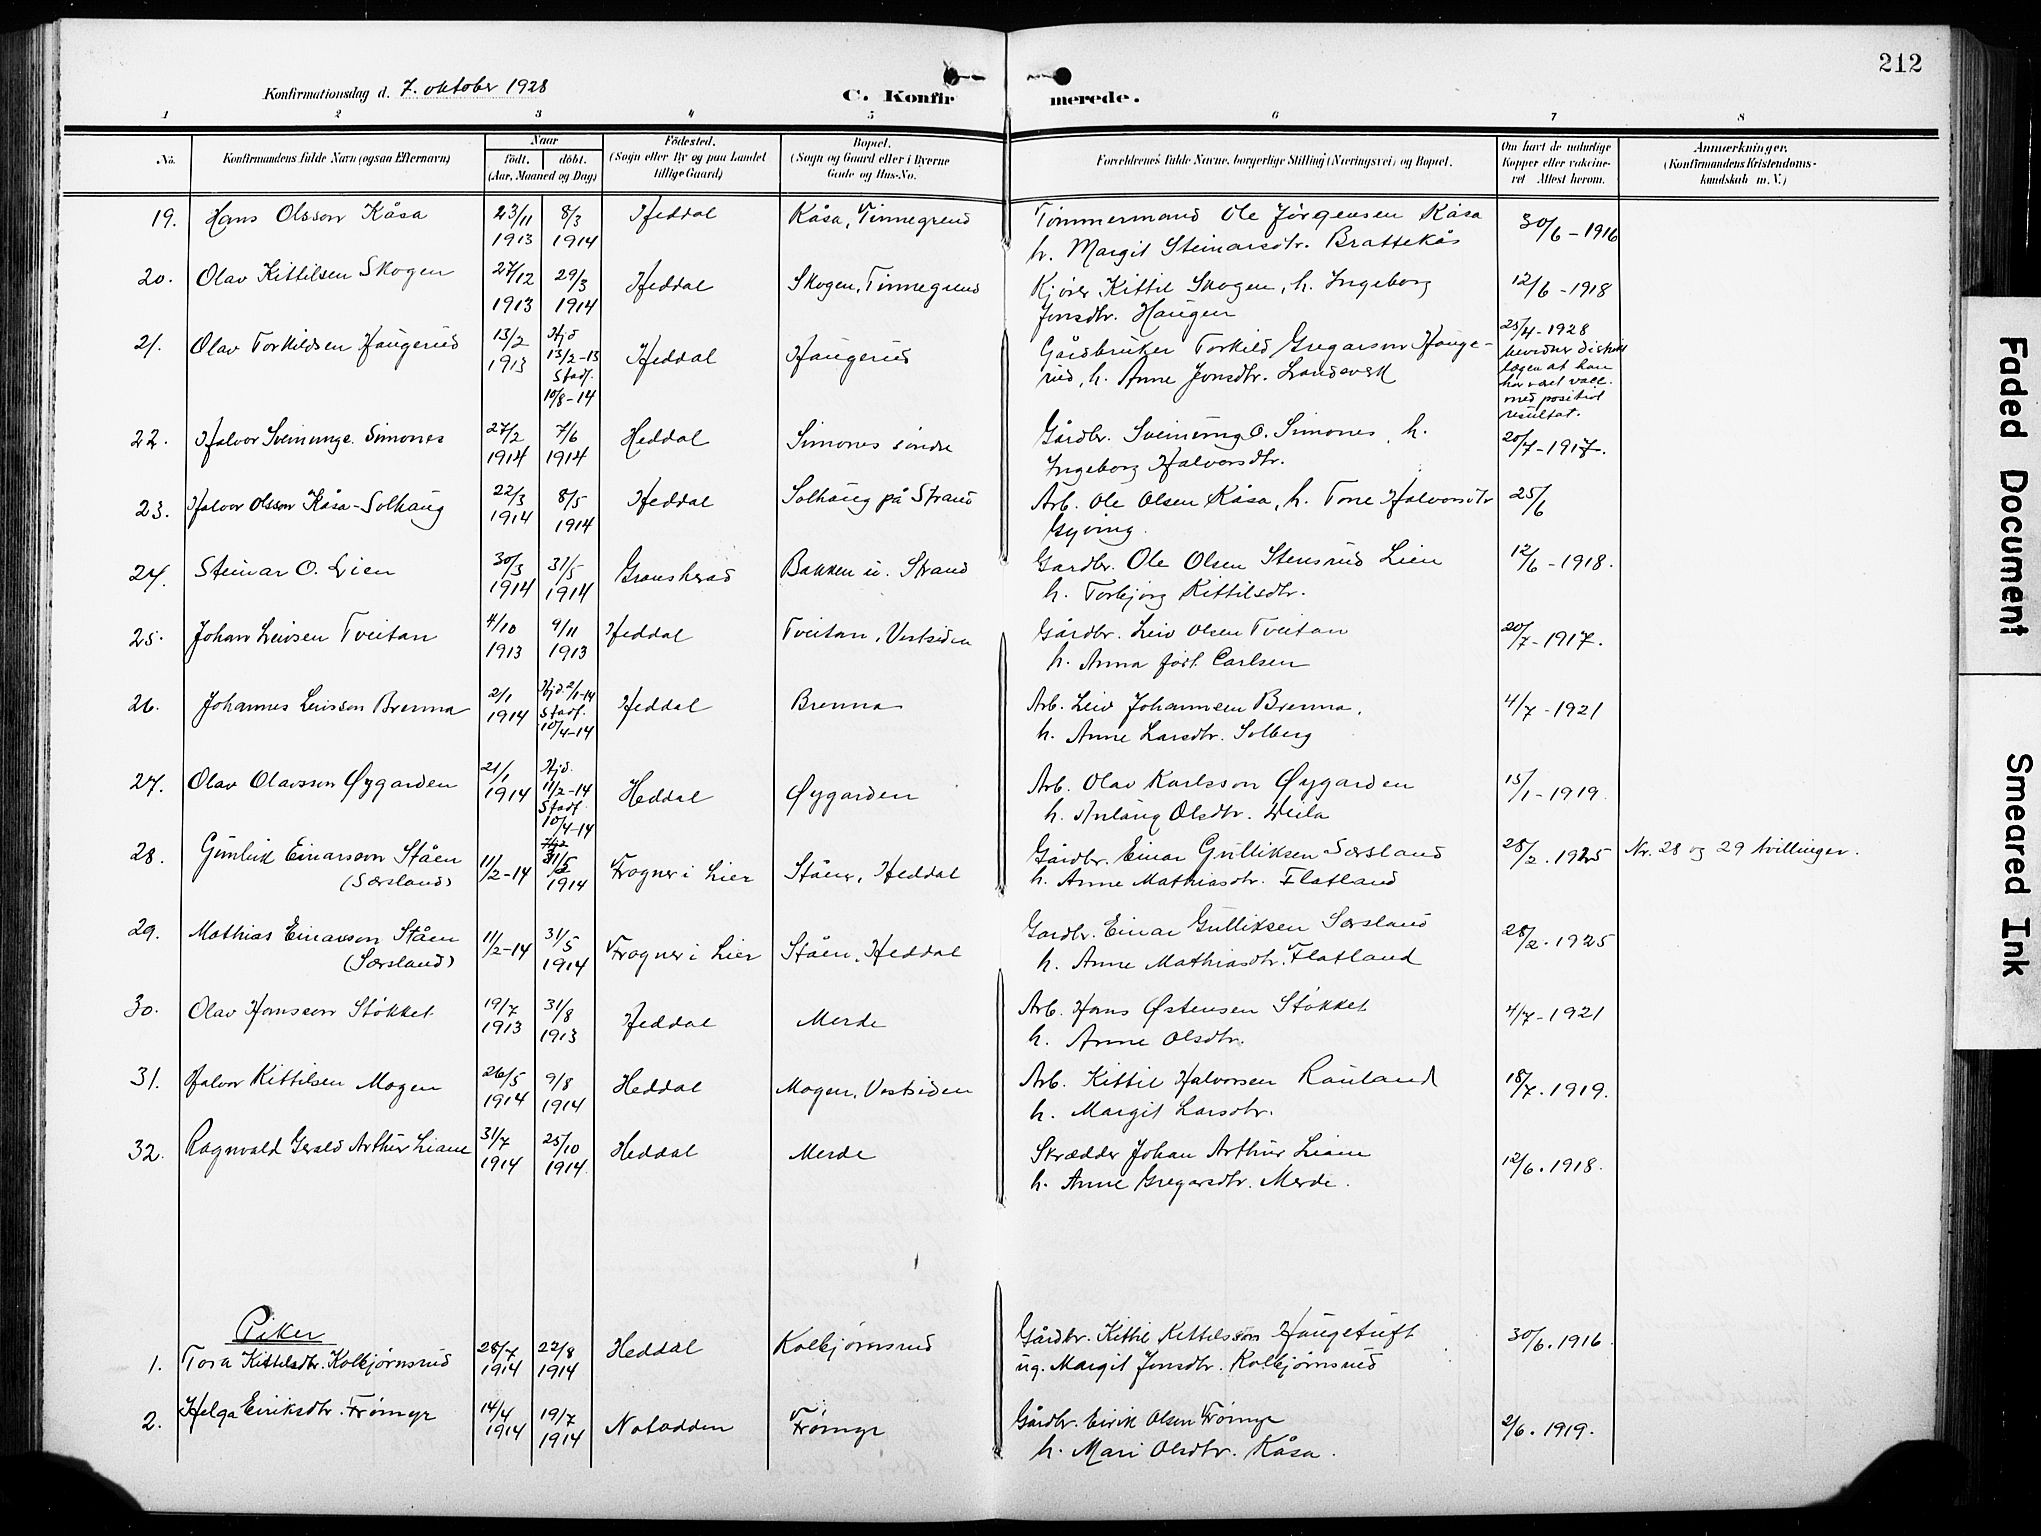 212
Konfirmationsdag d. 7. oktober 1928
C. Konfirmerede.
1 2 3 4 5 6 7 8
No. Konfirmandens fulde Navn (ogsaa Efternavn) Naar födt. döbt. (Aar, Maaned og Dag) Födested. (Sogn eller By og paa Landet tillige Gaard) Bopæl. (Sogn og Gaard eller i Byerne Gade og Hus-No. Forældrenes fulde Navne, borgerlige Stilling (Næringsvei) og Bopæl. Om havt de naturlige Kopper eller vakcineret Attest herom. Anmærkninger. (Konfirmandens Kristendomskundskab m. V.)
19. Hans Olsson Kåsa 23/11 1913 8/3 1914 Heddal Kåsa, Tinnegrend Tømmermand Ole Jørgensen Kåsa
h. Margit Steinarsdtr. Brattekås 30/6 - 1916
20. Olav Kittilsen Skogen 27/12 1913 29/3 1914 Heddal Skogen, Tinnegrend Kjører Kittil Skogen, h. Ingeborg
Jonsdtr. Haugen 12/6 - 1918
21. Olav Torkildsen Haugerud 13/2 1913 Hjd 13/2-13 Stadf. 10/8-14 Heddal Haugerud Gårdbruker Torkild Gregarson Hauge-
rud, h. Anne Jonsdtr. Landsverk 25/4 - 1928
bevidner distrikt
lægen at han
har vært vacc.
med positivt
resultat.
22. Halvor Sveinunge. Simones 27/2 1914 7/6 1914 Heddal Simones søndre Gårdbr. Sveinung O. Simones, h.
Ingeborg Halvorsdtr. 20/7 - 1917.
23. Halvor Olsson Kåsa-Solhaug 22/3 1914 8/5 1914 Heddal Solhaug på Strand Arb. Ole Olsen Kåsa, h. Tone Halvorsdtr
Gyving. 25/6
24. Steinar O. Lien 30/3 1914 31/5 1914 Gransherad Bakken u. Strand Gardbr. Ole Olsen Stensrud Lien
h. Torbjørg Kittilsdtr. 12/6 - 1918.
25. Johan Leivsen Tveitan 4/10 1913 9/11 1913 Heddal Tveitan, Vestsiden Gårdbr. Leiv Olsen Tveitan
h. Anna født Carlsen 20/7 - 1917.
26. Johannes Leivsson Brenna 2/1 1914 Hjd. 2/1-14 Stadf. 10/4-14 Heddal Brenna Arb. Leiv Johannesen Brenna,
h. Anne Larsdtr. Solberg 4/7 - 1921
27. Olav Olavsson Øygarden 21/1 1914 Hjd. 11/2-14 Stadf. 10/4-14 Heddal Øygarden Arb. Olav Karlsson Øygarden
h. Anlaug Olsdtr. 15/1 - 1919.
28. Gunleik Einarsson Ståen
(Sørsland) 11/2-14 31/5 1914 Frogner i Lier Ståen, Heddal Gårdbr. Einar Gulliksen Sørsland
h. Anne Mathiasdtr. Flatland 28/2. 1925 Nr. 28 og 29 tvillinger.
29. Mathias Einarson Ståen
(Sørsland) 11/2-14 31/5 1914 Frogner i Lier Ståen, Heddal Gardbr. Einar Gulliksen Sørsland
h. Anne Mathiasdtr. Flatland 28/2. 1925
30. Olav Hansson Støkket 19/7 1913 31/8 1913 Heddal Merde Arb. Hans Østensen Støkket
h. Anne Olsdtr. 4/7 - 1921
31. Halvor Kittilsen Mogen 26/5 1914 9/8 1914 Heddal Mogen, Vestsiden Arb. Kittil Halvorsen Rauland
h. Margit Larsdtr. 18/7. 1919.
32. Ragnvald Gerald Arthur Liane 31/7 1914 25/10 1914. Heddal Merde Skrædder Johan Arthur Liane
h. Anne Gregarsdtr. Merde. 12/6. 1918.
Piker
1. Tora Kittelsdtr. Kolbjørnsrud 28/7 1914 22/8 1914 Heddal Kolbjørnsrud Gårdbr. Kittil Kittelsson Haugetuft
ug. Margit Jonsdtr. Kolbjørnsrud 30/6. 1916.
2. Helga Eiriksdtr. Frømyr 14/4 1914 19/7 1914 Notodden Frømyr Gårdbr. Eirik Olsen Frømyr
h. Mari Olsdtr. Kåsa. 2/6. 1919.
Faded Document
Smeared Ink